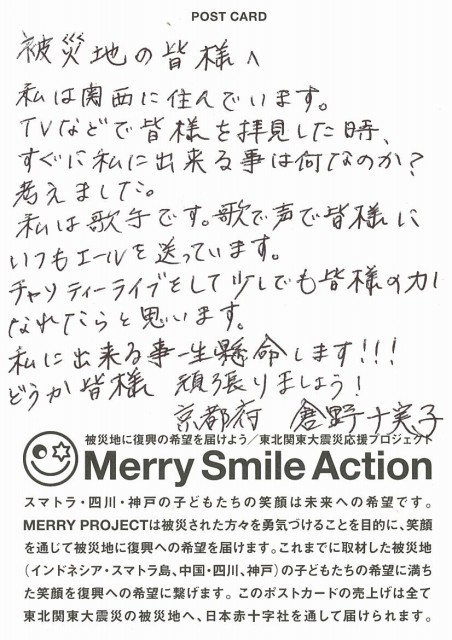 POST CARD
被災地の皆様へ
私は関西に住んでいます。
TVなどで皆様を拝見した時、
すぐに私に出来る事は何なのか?
考えました。
私は歌手です。歌で声で皆様に
いつもエールを送っています。
チャリティーライブをして少しでも皆様の力に
なれたらと思います。
私に出来る事一生懸命します!!!
どうか皆様 頑張りましょう!
京都府 倉野十実子
被災地に復興の希望を届けよう/東北関東大震災応援プロジェクト
Merry Smile Action
スマトラ・四川・神戸の子どもたちの笑顔は未来への希望です。
MERRY PROJECTは被災された方々を勇気づけることを目的に、笑顔
を通じて被災地に復興への希望を届けます。これまでに取材した被災地
(インドネシア・スマトラ島、中国・四川、神戸)の子どもたちの希望に満ち
た笑顔を復興への希望に繋げます。このポストカードの売上げは全て
東北関東大震災の被災地へ、日本赤十字社を通して届けられます。